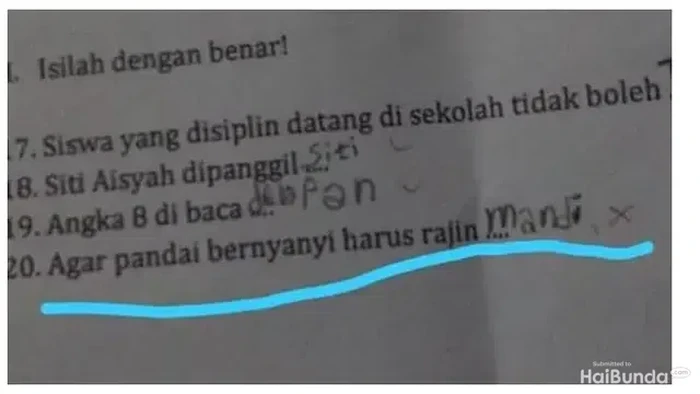 I. Isilah dengan benar!
17. Siswa yang disiplin datang di sekolah tidak boleh
18. Siti Aisyah dipanggil ... Siti
19. Angka 8 di baca ... depan
20. Agar pandai bernyanyi harus rajin .... mandi
Submitted to
HaiBunda.com